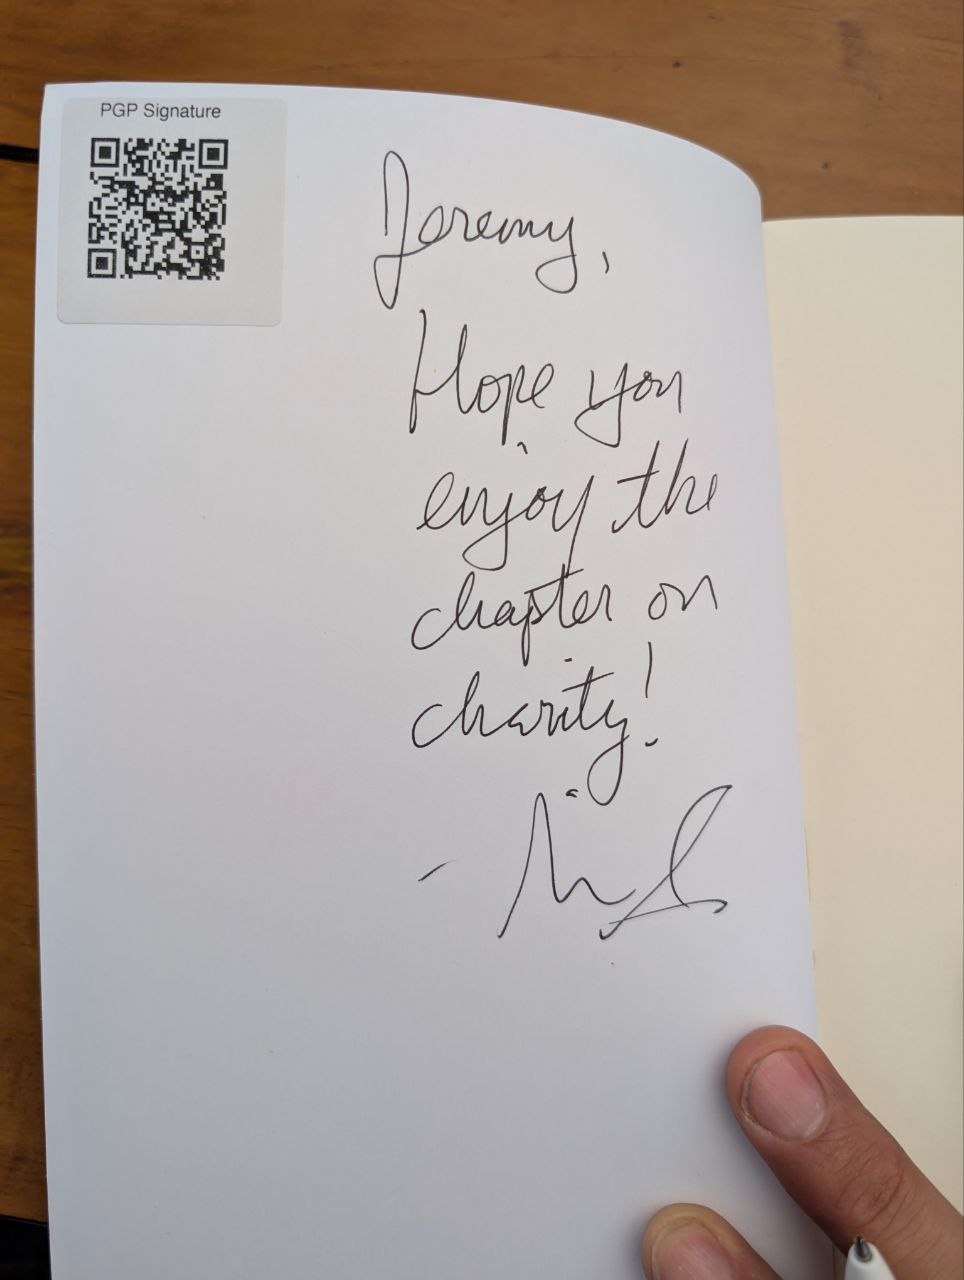 PGP Signature
Jeremy,
Hope you
enjoy the
chapter on
charity!